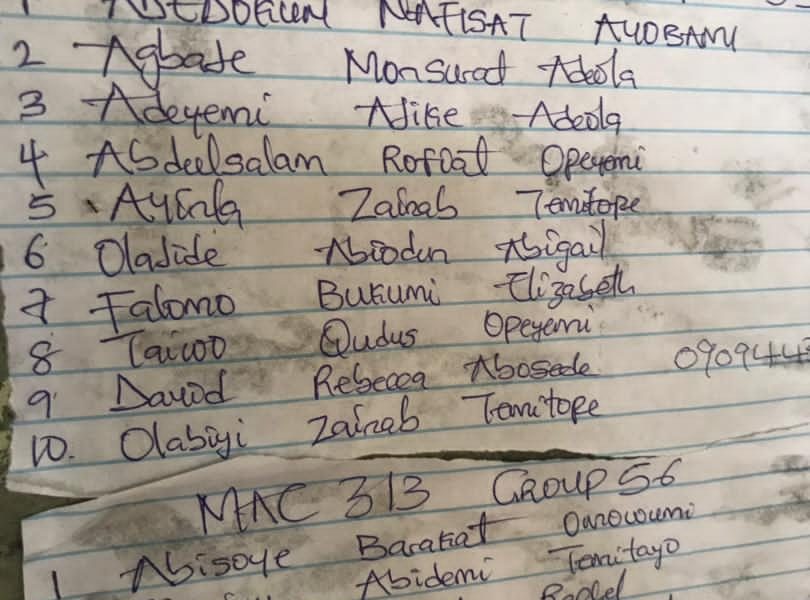 1 NAFISAT AYOBAMI
2 Agbaje Monsurat Adeola
3 Adeyemi Ajike Adeola
4 Abdeelsalam Rofiat Opeyemi
5 Ayinla Zainab Temitope
6 Oladide Abiodun Abigail
7 Falomo Bukumi Elizabeth
8 Taiwo Qudus Opeyemi
9 David Rebecca Abosede 0909443
10. Olabiyi Zainab Temitope
MAC 313 GROUP 56
1 Abisoye Barakat Omowumi
Abidemi Temitayo